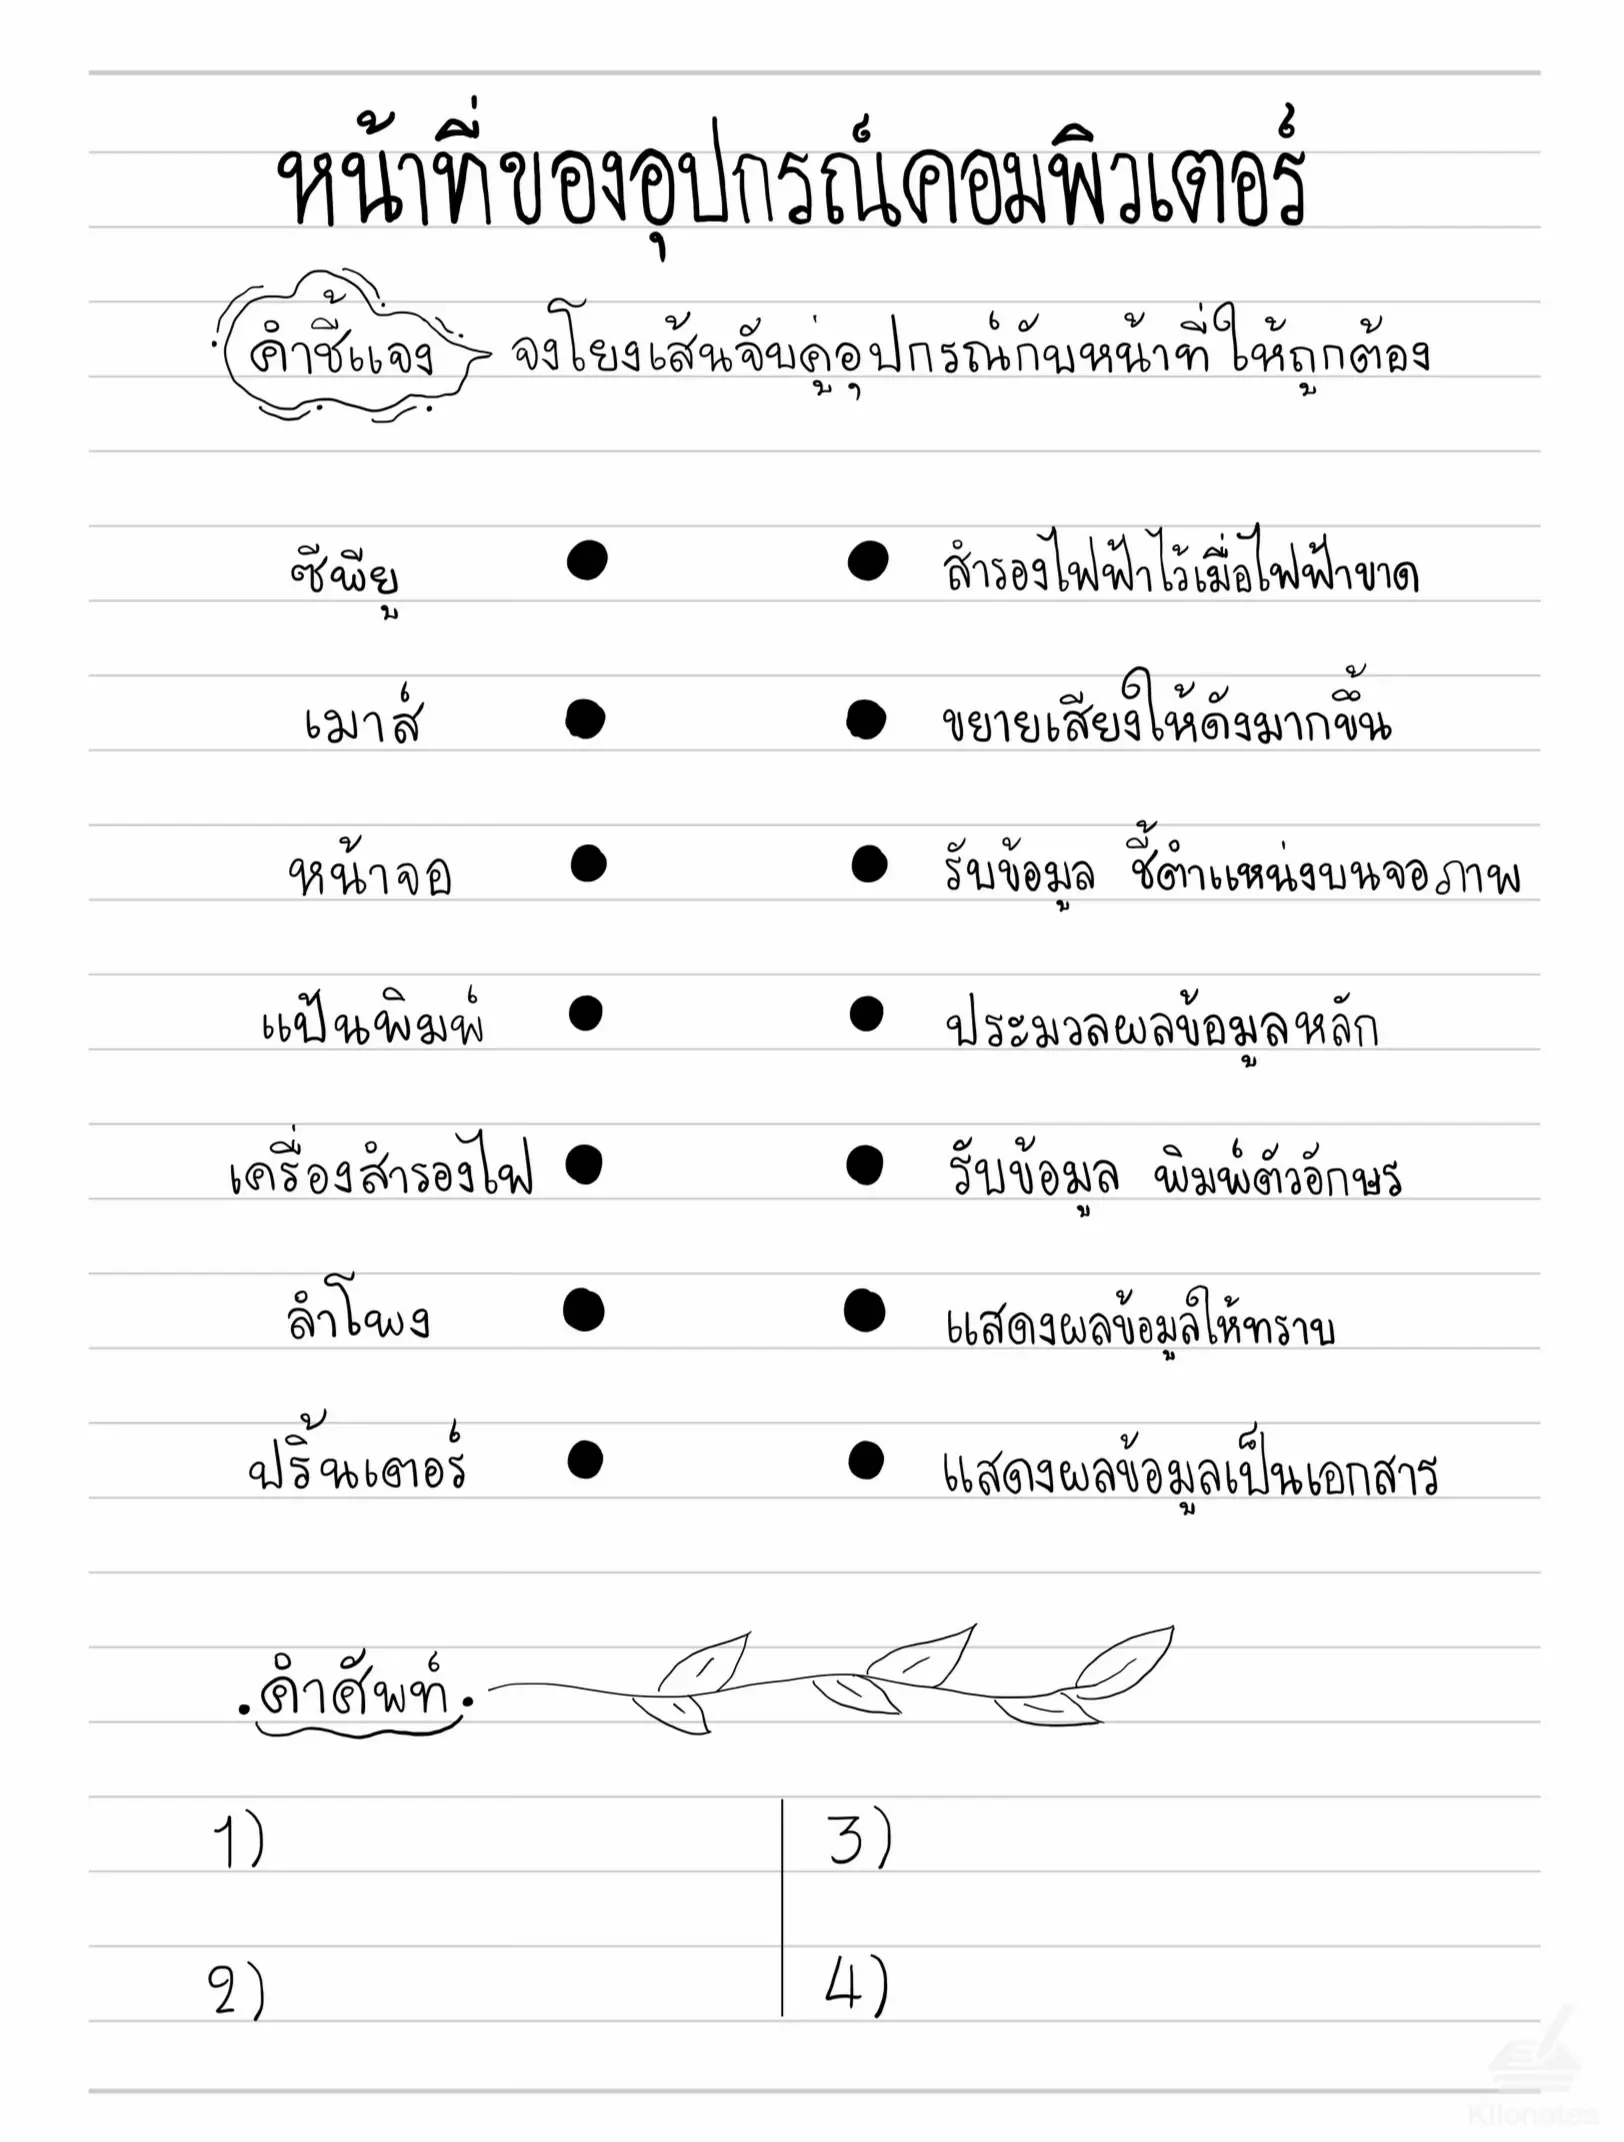 หน้าที่ของอุปกรณ์คอมพิวเตอร์
คำชี้แจง จงโยงเส้นจับคู่อุปกรณ์กับหน้าที่ให้ถูกต้อง
ซีพียู ● ● สำรองไฟฟ้าไว้เมื่อไฟฟ้าขาด
เมาส์ ● ● ขยายเสียงให้ดังมากขึ้น
หน้าจอ ● ● รับข้อมูล ชี้ตำแหน่งบนจอภาพ
แป้นพิมพ์ ● ● ประมวลผลข้อมูลหลัก
เครื่องสำรองไฟ ● ● รับข้อมูล พิมพ์ตัวอักษร
ลำโพง ● ● แสดงผลข้อมูลให้ทราบ
ปริ้นเตอร์ ● ● แสดงผลข้อมูลเป็นเอกสาร
.คำศัพท์.
1) 3)
2) 4)
Kilonotes